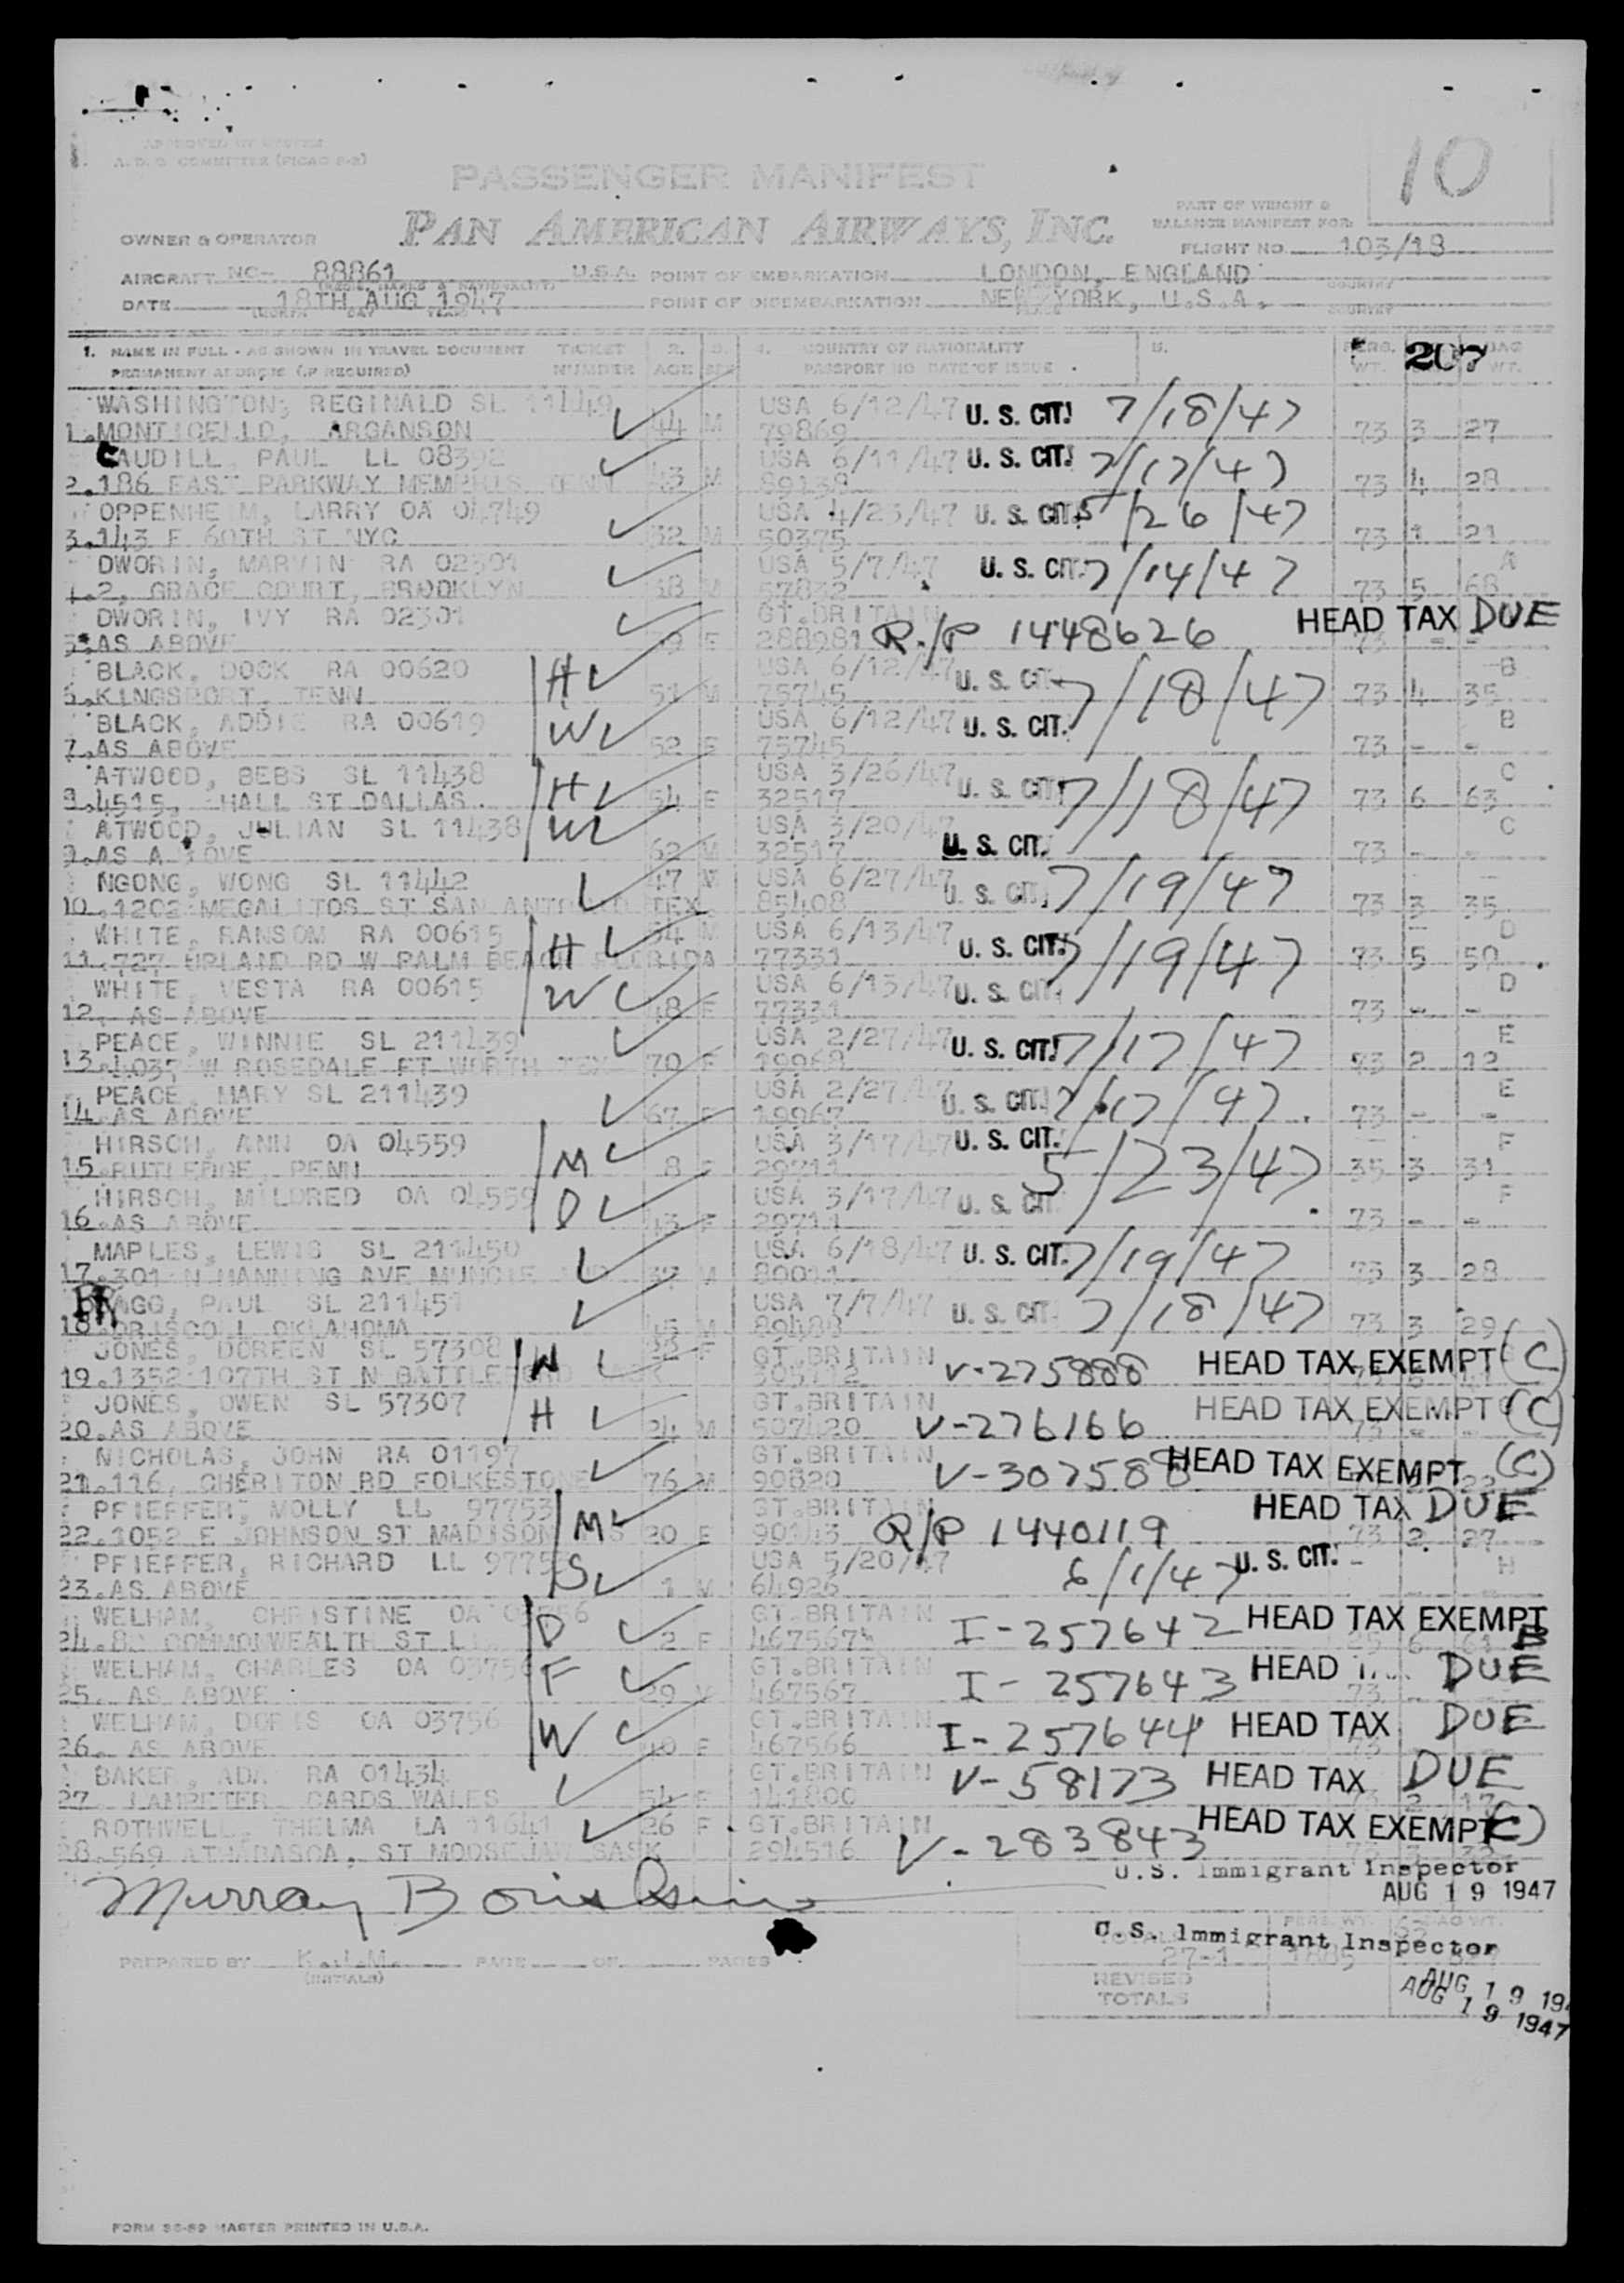 10
APPROVED BY SYSTEM
A.T.C. COMMITTEE (PICAO F-2)
PASSENGER MANIFEST
PART OF WEIGHT &
BALANCE MANIFEST FOR:
OWNER & OPERATOR PAN AMERICAN AIRWAYS, INC.
FLIGHT NO. 103/18
AIRCRAFT NC- 88861 U.S.A. POINT OF EMBARKATION LONDON, ENGLAND COUNTRY
DATE 18TH AUG 1947 POINT OF DISEMBARKATION NEW YORK, U.S.A. COUNTRY
1. NAME IN FULL - AS SHOWN IN TRAVEL DOCUMENT TICKET 2. 3. 4. COUNTRY OF NATIONALITY 5. PERS. 207 BAG
PERMANENT ADDRESS (IF REQUIRED) NUMBER AGE SEX PASSPORT NO DATE OF ISSUE WT. WT.
WASHINGTON, REGINALD SL 11449 USA 6/12/47 U. S. CIT. 7/18/47
1. MONTICELLO, ARGANSON 44 M 79869 73 3 27
CAUDILL, PAUL LL 08392 USA 6/11/47 U. S. CIT. 7/17/47
2. 186 EAST PARKWAY MEMPHIS TENN 43 M 89138 73 4 28
OPPENHEIM, LARRY OA 04749 USA 4/23/47 U. S. CIT. 5/26/47
3. 143 E 60TH ST NYC 32 M 50375 73 1 21
DWORIN, MARVIN RA 02301 USA 5/7/47 U. S. CIT. 7/14/47 A
4. 2, GRACE COURT, BROOKLYN M 57832 73 5 68
DWORIN, IVY RA 02301 GT.BRITAIN HEAD TAX DUE
5. AS ABOVE F 288981 R/P 1448626 73 - -
BLACK, DOCK RA 00620 H USA 6/12/47 U. S. CIT. 7/18/47 B
6. KINGSPORT, TENN 51 M 75745 73 4 35
BLACK, ADDIE RA 00619 W USA 6/12/47 U. S. CIT. B
7. AS ABOVE 52 F 75745 73 - -
ATWOOD, BEBS SL 11438 H USA 3/26/47 U. S. CIT. 7/18/47 C
8. 4515, HALL ST DALLAS 54 F 32517 73 6 63
ATWOOD, JULIAN SL 11438 W USA 3/20/47 U. S. CIT. C
9. AS ABOVE 62 M 32517 73 - -
NGONG, WONG SL 11442 47 M USA 6/27/47 U. S. CIT. 7/19/47
10. 1202 MEGALITOS ST SAN ANTONIO TEX 85408 73 3 35
WHITE, RANSOM RA 00615 H 54 M USA 6/13/47 U. S. CIT. 7/19/47 D
11. 727 UPLAND RD W PALM BEACH FLORIDA 77331 73 5 50
WHITE, VESTA RA 00615 W USA 6/13/47 U. S. CIT. D
12. AS ABOVE 48 F 77331 73 - -
PEACE, WINNIE SL 211439 USA 2/27/47 U. S. CIT. 7/17/47 E
13. 4037 W ROSEDALE FT WORTH TEX 70 F 19968 73 2 12
PEACE, MARY SL 211439 USA 2/27/47 U. S. CIT. 7/17/47 E
14. AS ABOVE 67 F 19967 73 - -
HIRSCH, ANN OA 04559 M USA 3/17/47 U. S. CIT. 5/23/47 F
15. RUTLEDGE, PENN 8 F 29711 35 3 31
HIRSCH, MILDRED OA 04559 D USA 3/17/47 U. S. CIT. F
16. AS ABOVE 43 F 29711 73 - -
MAPLES, LEWIS SL 211450 USA 6/18/47 U. S. CIT. 7/19/47
17. 301 N MANNING AVE MUNCIE IND M 80011 73 3 28
BRAGG, PAUL SL 211451 USA 7/7/47 U. S. CIT. 7/18/47
18. DRISCOLL OKLAHOMA 45 M 89488 73 3 29
JONES, DOREEN SL 57308 W 22 F GT.BRITAIN V-275888 HEAD TAX EXEMPT (C)
19. 1352 107TH ST N BATTLEFORD
JONES, OWEN SL 57307 H GT.BRITAIN HEAD TAX EXEMPT (C)
20. AS ABOVE 24 M 507420 V-276166 73 - -
NICHOLAS, JOHN RA 01197 GT.BRITAIN HEAD TAX EXEMPT (C)
21. 116, CHERITON RD FOLKESTONE 76 M 90820 V-307588 22
PFIEFFER, MOLLY LL 97753 M GT.BRITAIN HEAD TAX DUE
22. 1052 E JOHNSON ST MADISON WIS 20 F 90143 R/P 1440119 73 2 27
PFIEFFER, RICHARD LL 97753 S USA 5/20/47 6/1/47 U. S. CIT. H
23. AS ABOVE 1 M 64926
WELHAM, CHRISTINE OA D GT.BRITAIN I-257642 HEAD TAX EXEMPT B
24. COMMONWEALTH ST 2 F 467567
WELHAM, CHARLES OA 03756 F GT.BRITAIN I-257643 HEAD DUE
25. AS ABOVE 29 M 467567 73
WELHAM, DORIS OA 03756 W GT.BRITAIN I-257644 HEAD TAX DUE
26. AS ABOVE F 467566 73
BAKER, ADA RA 01434 GT.BRITAIN V-58173 HEAD TAX DUE
27. LAMPETER CARDS WALES 54 F 141800 2 17
ROTHWELL, THELMA LA 11641 26 F GT.BRITAIN V-283843 HEAD TAX EXEMPT (C)
28. 569 ATHABASCA, ST MOOSEJAW SASK 294516
U.S. Immigrant Inspector
AUG 19 1947
Murray
U.S. Immigrant Inspector
TOTALS 27-1 1885
PREPARED BY K.L.M. PAGE OF PAGES
(INITIALS)
REVISED
TOTALS
AUG 19 194
AUG 19 1947
FORM 36-59 MASTER PRINTED IN U.S.A.